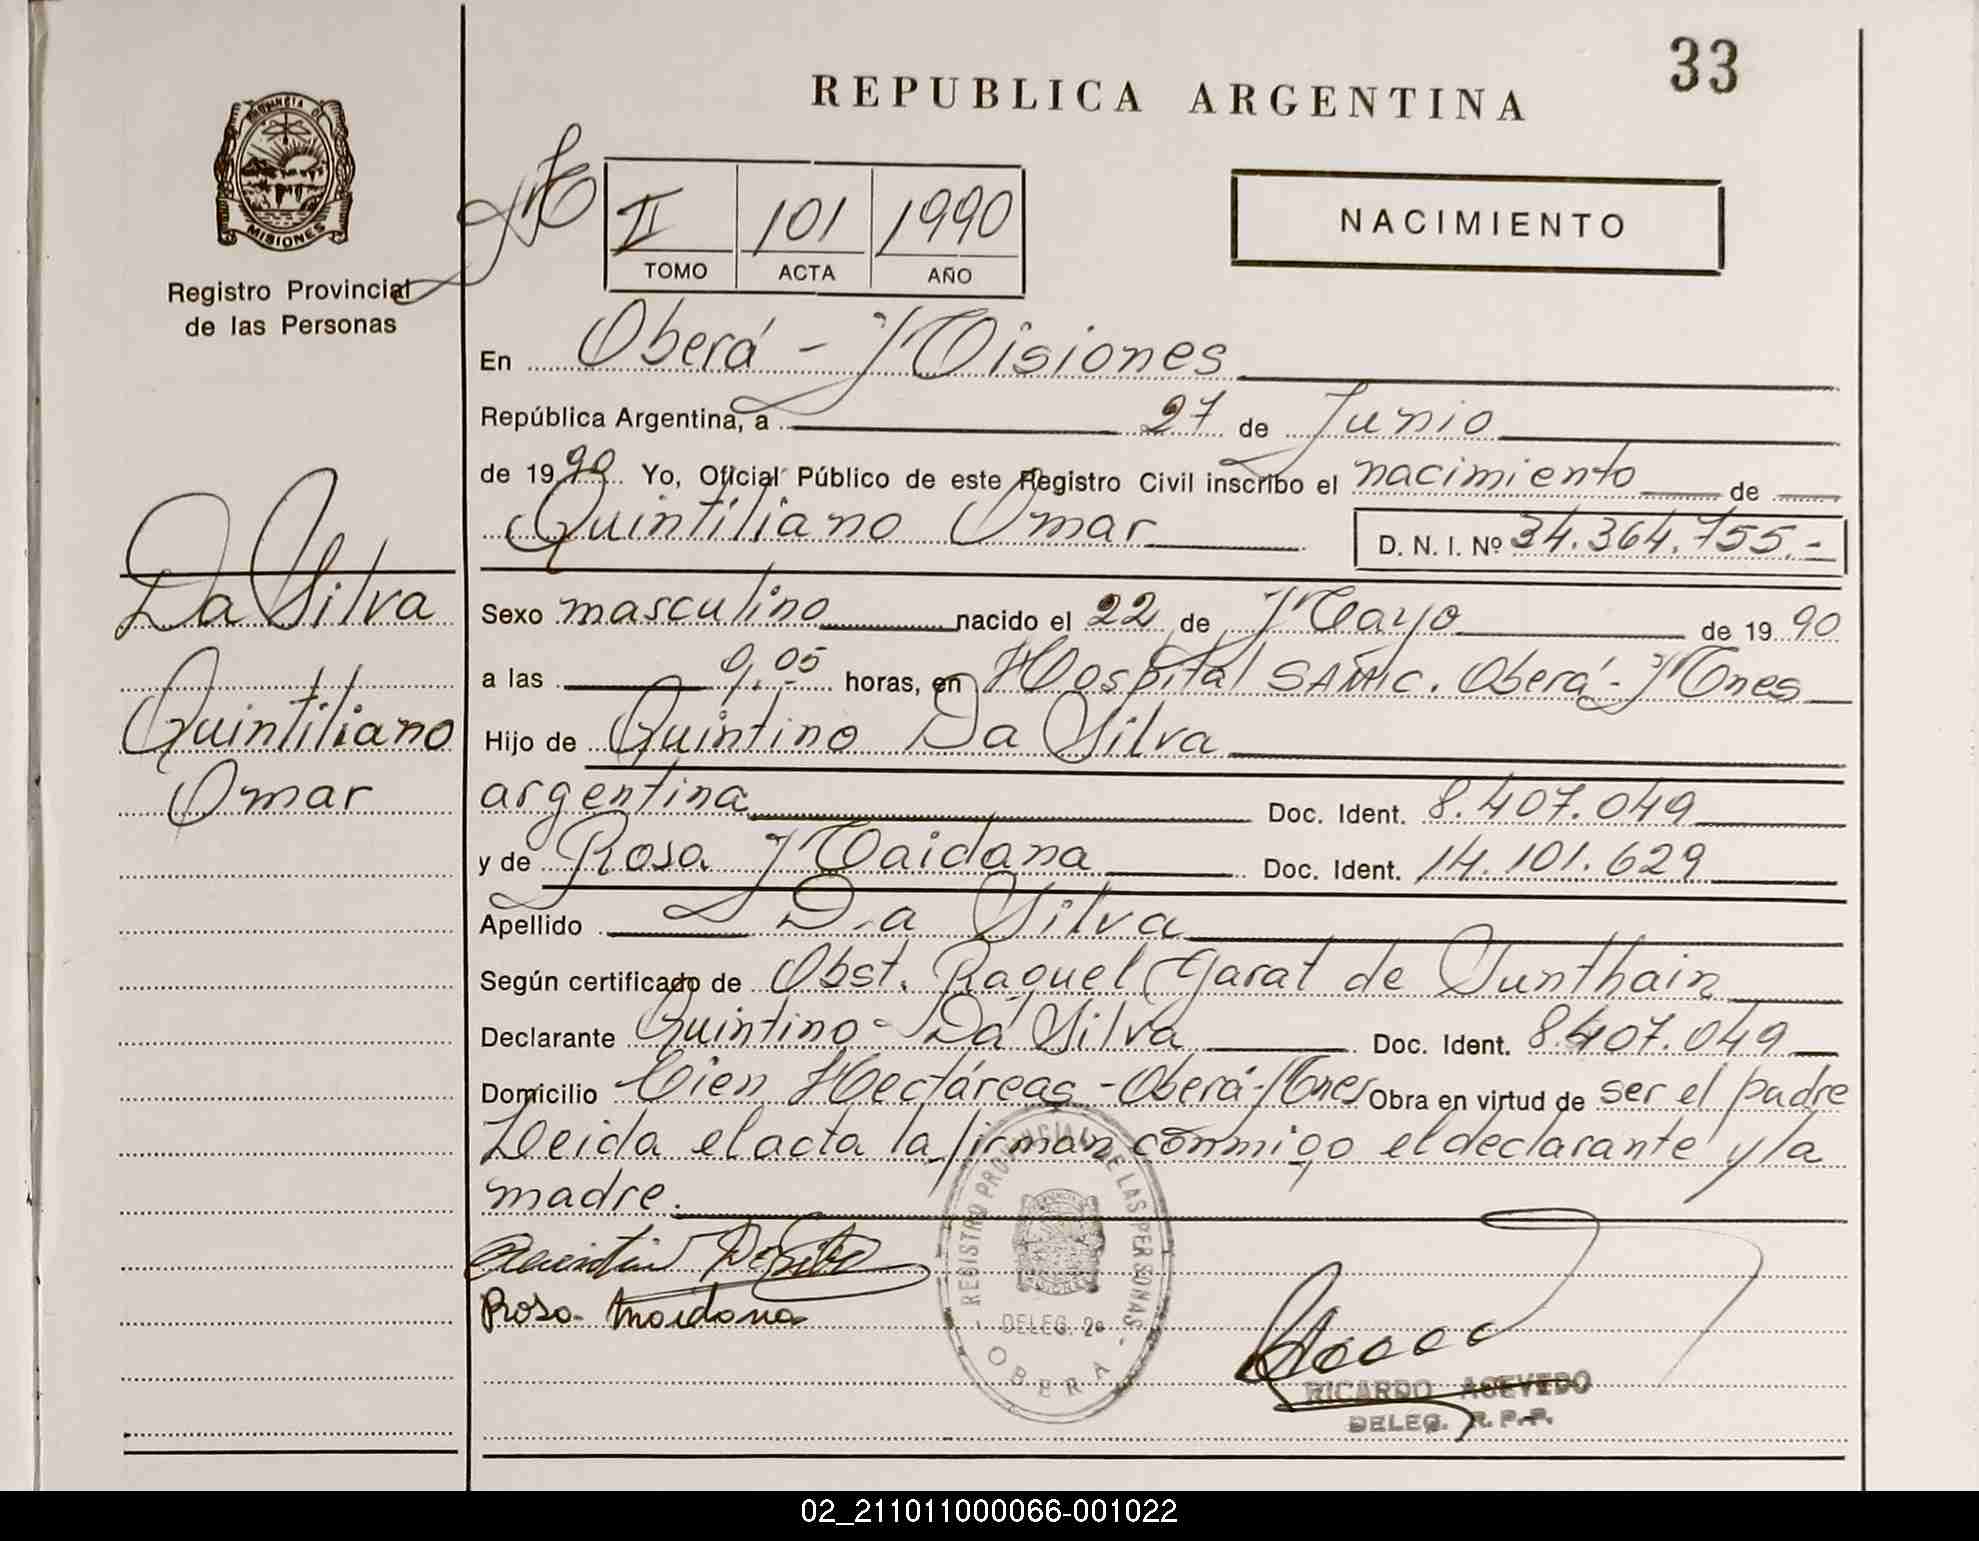 33
REPUBLICA ARGENTINA
PROVINCIA DE
MISIONES
Registro Provincial
de las Personas
II 101 1990
TOMO ACTA AÑO
NACIMIENTO
En Oberá - Misiones
República Argentina, a 27 de Junio
de 1990 Yo, Oficial Público de este Registro Civil inscribo el nacimiento de
Quintiliano Omar D. N. I. Nº 34.364.755.-
Da Silva
Quintiliano
Omar
Sexo masculino nacido el 22 de Mayo de 1990
a las 9,05 horas, en Hospital SAMIC. Oberá - Mnes
Hijo de Quintino Da Silva
argentina Doc. Ident. 8.407.049
y de Rosa Maidana Doc. Ident. 14.101.629
Apellido Da Silva
Según certificado de Obst. Raquel Garat de Sunthain
Declarante Quintino Da Silva Doc. Ident. 8.407.049
Domicilio Cien Hectáreas - Oberá - Mnes Obra en virtud de ser el padre
Leida el acta la firman conmigo el declarante y la
madre.
Rosa Maidana
REGISTRO PROVINCIAL DE LAS PERSONAS
DELEG. 2ª
OBERA
RICARDO ACEVEDO
DELEG. R. P. P.
02_211011000066-001022